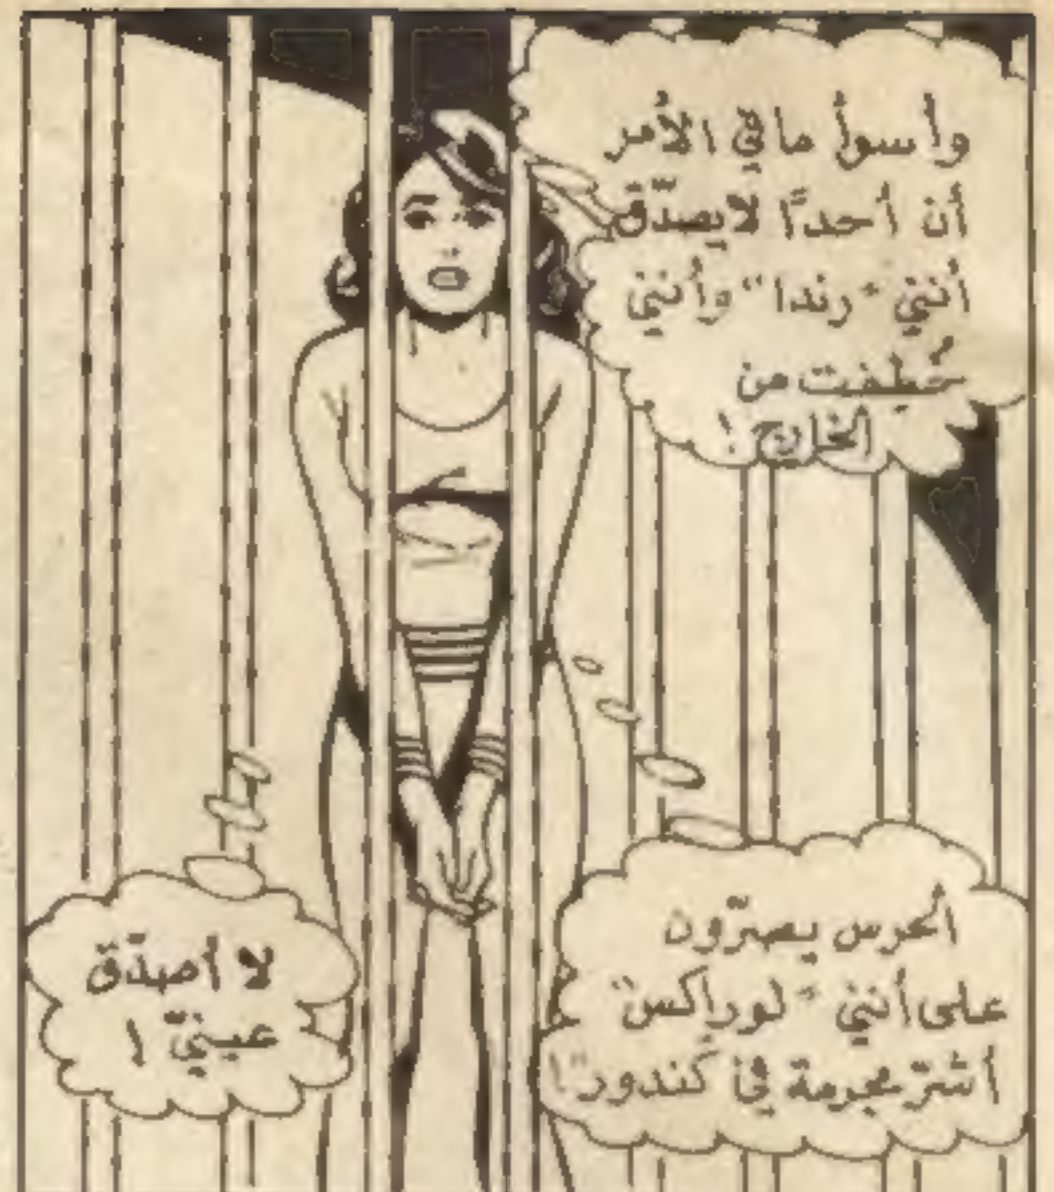 وأسوأ ما في الأمر
أن أحدًا لا يصدّق
أنني "رندا" وأنني
خُطِفت من
الخارج!
الحرس يصرّون
على أنني "لوراكس"
أشرّ مجرمة في كندور"!
لا أصدّق
عينيّ!